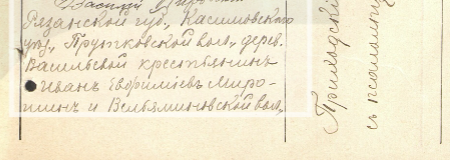 Рязанской губ., Касимовскаго
уез., Прудковской вол., дерев.
Васильевой крестьянинъ
Иванъ Евфимiевъ Миро-
и Вельяминовской вол.,
Приходскій
съ псаломщ